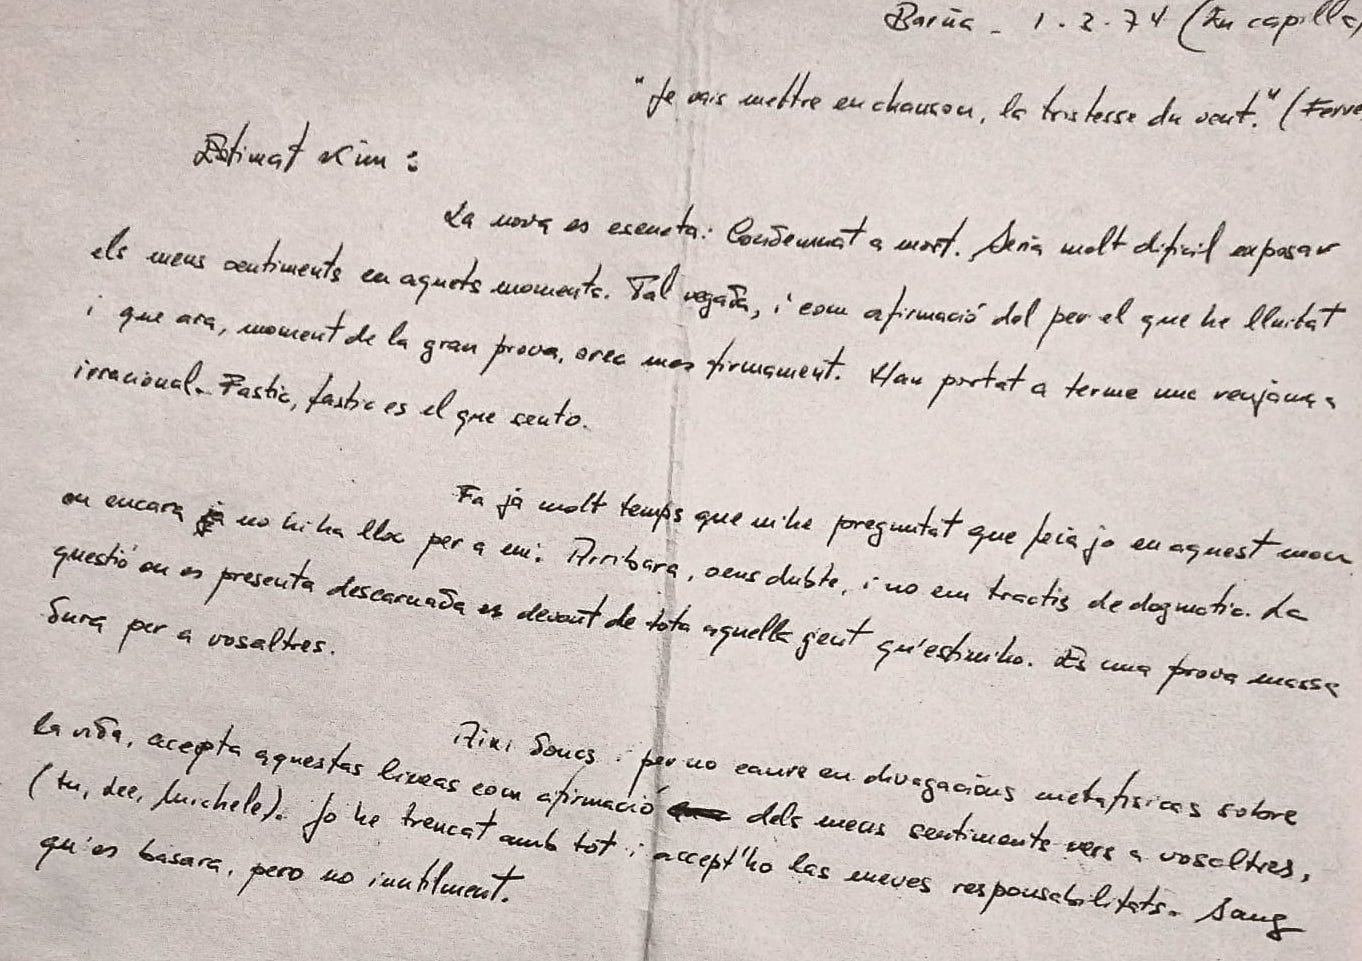 Barña - 1.3.74 (En capilla)
"Je vais mettre en chanson, la tristesse du vent." (Ferré
Estimat Kim:
La nova es escueta: Condemnat a mort. Seria molt dificil exposar
els meus sentiments en aquets moments. Tal vegada, i com afirmació del per el que he lluitat
i que ara, moment de la gran prova, crec mes firmament. Han portat a terme una venjança
irracional. Fastic, fastic es el que sento.
Fa ja molt temps que m'he preguntat que feia jo en aquest mon
on encara no hi ha lloc per a mi. Arribara, sens dubte, i no em tractis de dogmatic. La
questió on es presenta descarnada es devant de tota aquella gent qu'estimho. Es una prova massa
dura per a vosaltres.
Aixi doncs i per no caure en divagacions metafisicas sobre
la vida, acepta aquestas lineas com afirmació dels meus sentiments vers a vosaltres,
(tu, Lee, Michele). Jo he trencat amb tot i accept'ho las meves responsabilitats. Sang
qu'es basara, pero no inutilment.